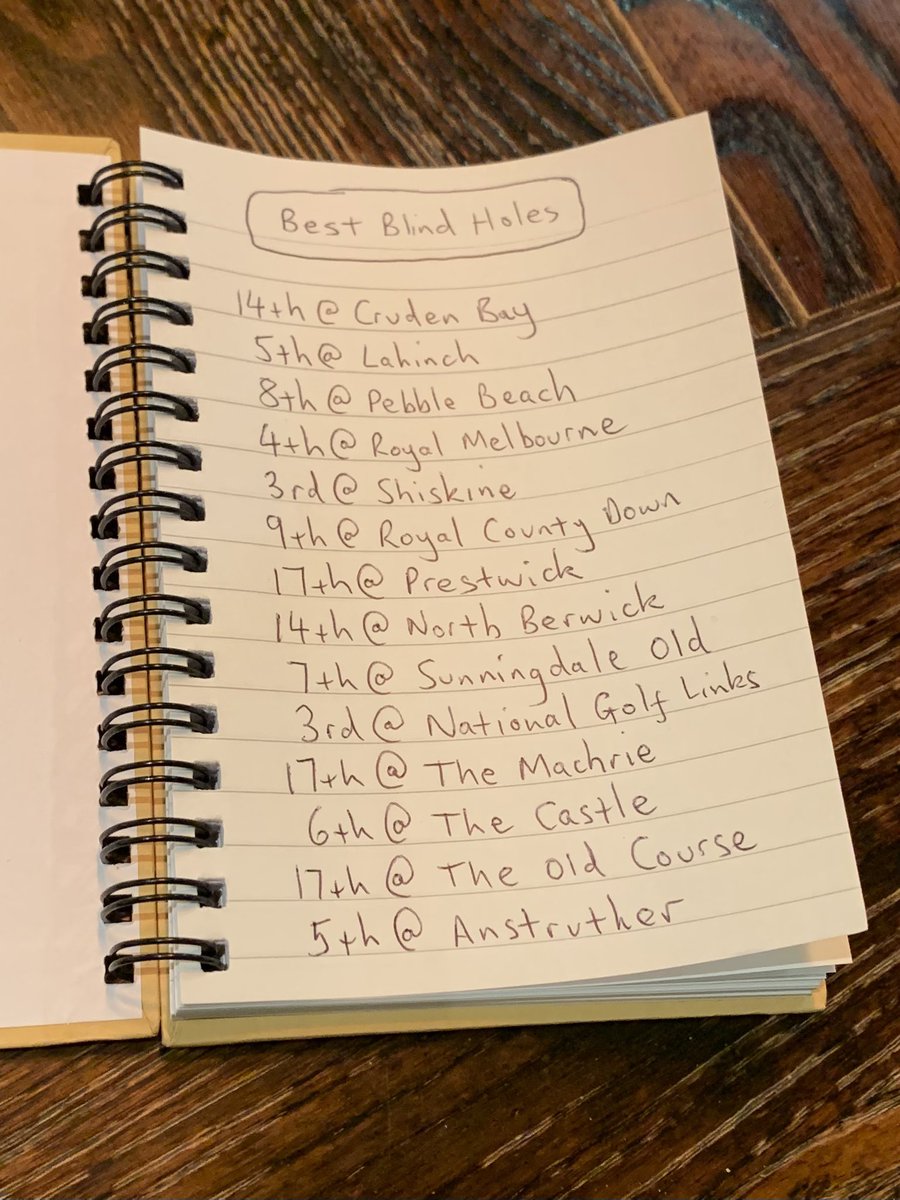 Best Blind Holes
14th @ Cruden Bay
5th @ Lahinch
8th @ Pebble Beach
4th @ Royal Melbourne
3rd @ Shiskine
9th @ Royal County Down
17th @ Prestwick
14th @ North Berwick
7th @ Sunningdale Old
3rd @ National Golf Links
17th @ The Machrie
6th @ The Castle
17th @ The Old Course
5th @ Anstruther